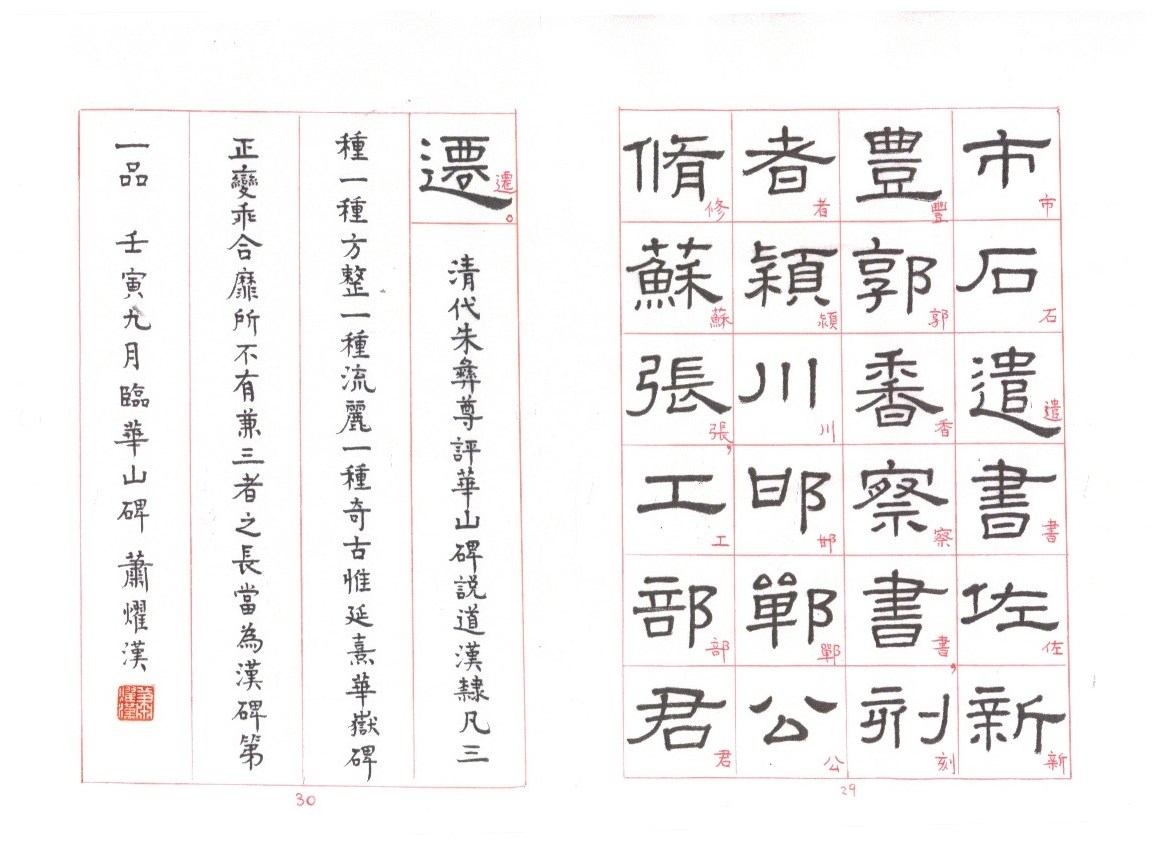 市石遣書佐新
市石遣書佐新
豊郭香察書刻
豐郭香察書，刻
者頴川邯鄲公
者頴川邯鄲公
脩蘇張工部君
修蘇張，工部君
29
遷
遷。
清代朱彝尊評華山碑説道漢隸凡三
種一種方整一種流麗一種奇古惟延熹華嶽碑
正變乖合靡所不有兼三者之長當為漢碑第
一品 壬寅九月臨華山碑 蕭燿漢
蕭燿漢
30